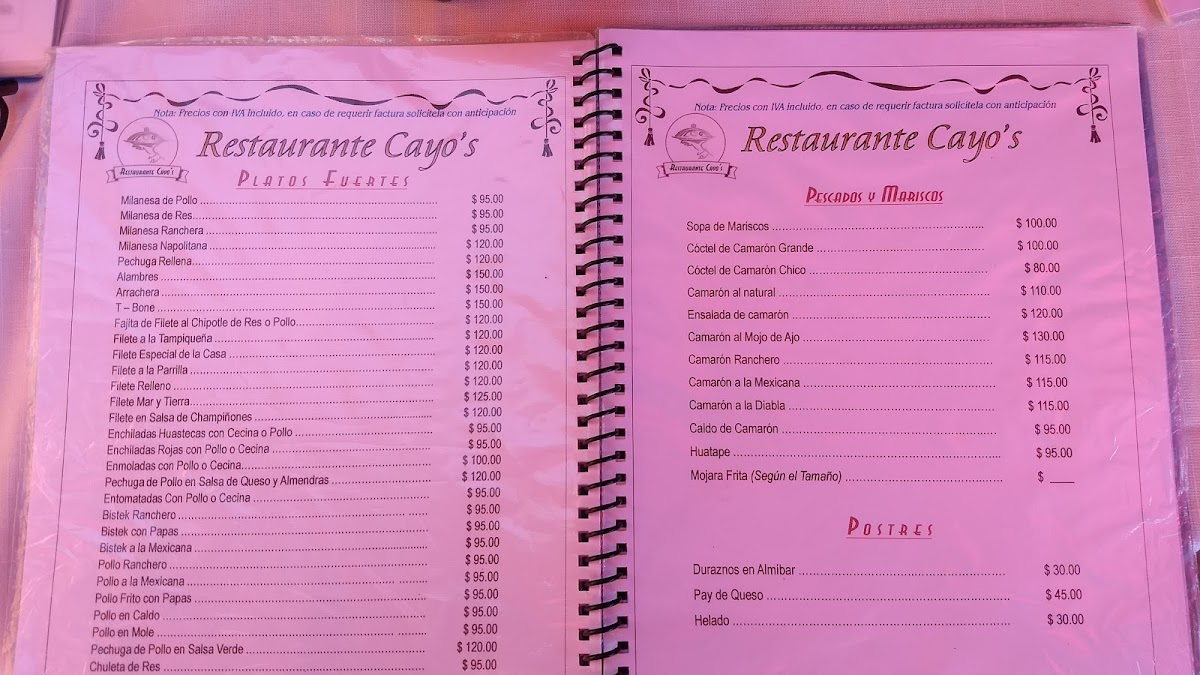 Nota: Precios con IVA incluido, en caso de requerir factura solicitela con anticipación
Restaurante Cayo's
RESTAURANTE CAYO'S
PLATOS FUERTES
Milanesa de Pollo ........ $ 95.00
Milanesa de Res ........ $ 95.00
Milanesa Ranchera ........ $ 95.00
Milanesa Napolitana ........ $ 120.00
Pechuga Rellena ........ $ 120.00
Alambres ........ $ 150.00
Arrachera ........ $ 150.00
T – Bone ........ $ 150.00
Fajita de Filete al Chipotle de Res o Pollo ........ $ 120.00
Filete a la Tampiqueña ........ $ 120.00
Filete Especial de la Casa ........ $ 120.00
Filete a la Parrilla ........ $ 120.00
Filete Relleno ........ $ 120.00
Filete Mar y Tierra ........ $ 125.00
Filete en Salsa de Champiñones ........ $ 120.00
Enchiladas Huastecas con Cecina o Pollo ........ $ 95.00
Enchiladas Rojas con Pollo o Cecina ........ $ 95.00
Enmoladas con Pollo o Cecina ........ $ 100.00
Pechuga de Pollo en Salsa de Queso y Almendras ........ $ 120.00
Entomatadas Con Pollo o Cecina ........ $ 95.00
Bistek Ranchero ........ $ 95.00
Bistek con Papas ........ $ 95.00
Bistek a la Mexicana ........ $ 95.00
Pollo Ranchero ........ $ 95.00
Pollo a la Mexicana ........ $ 95.00
Pollo Frito con Papas ........ $ 95.00
Pollo en Caldo ........ $ 95.00
Pollo en Mole ........ $ 95.00
Pechuga de Pollo en Salsa Verde ........ $ 120.00
Chuleta de Res ........ $ 95.00
Nota: Precios con IVA incluido, en caso de requerir factura solicitela con anticipación
Restaurante Cayo's
RESTAURANTE CAYO'S
PESCADOS Y MARISCOS
Sopa de Mariscos ........ $ 100.00
Cóctel de Camarón Grande ........ $ 100.00
Cóctel de Camarón Chico ........ $ 80.00
Camarón al natural ........ $ 110.00
Ensalada de camarón ........ $ 120.00
Camarón al Mojo de Ajo ........ $ 130.00
Camarón Ranchero ........ $ 115.00
Camarón a la Mexicana ........ $ 115.00
Camarón a la Diabla ........ $ 115.00
Caldo de Camarón ........ $ 95.00
Huatape ........ $ 95.00
Mojara Frita (Según el Tamaño) ........ $ ____
POSTRES
Duraznos en Almibar ........ $ 30.00
Pay de Queso ........ $ 45.00
Helado ........ $ 30.00